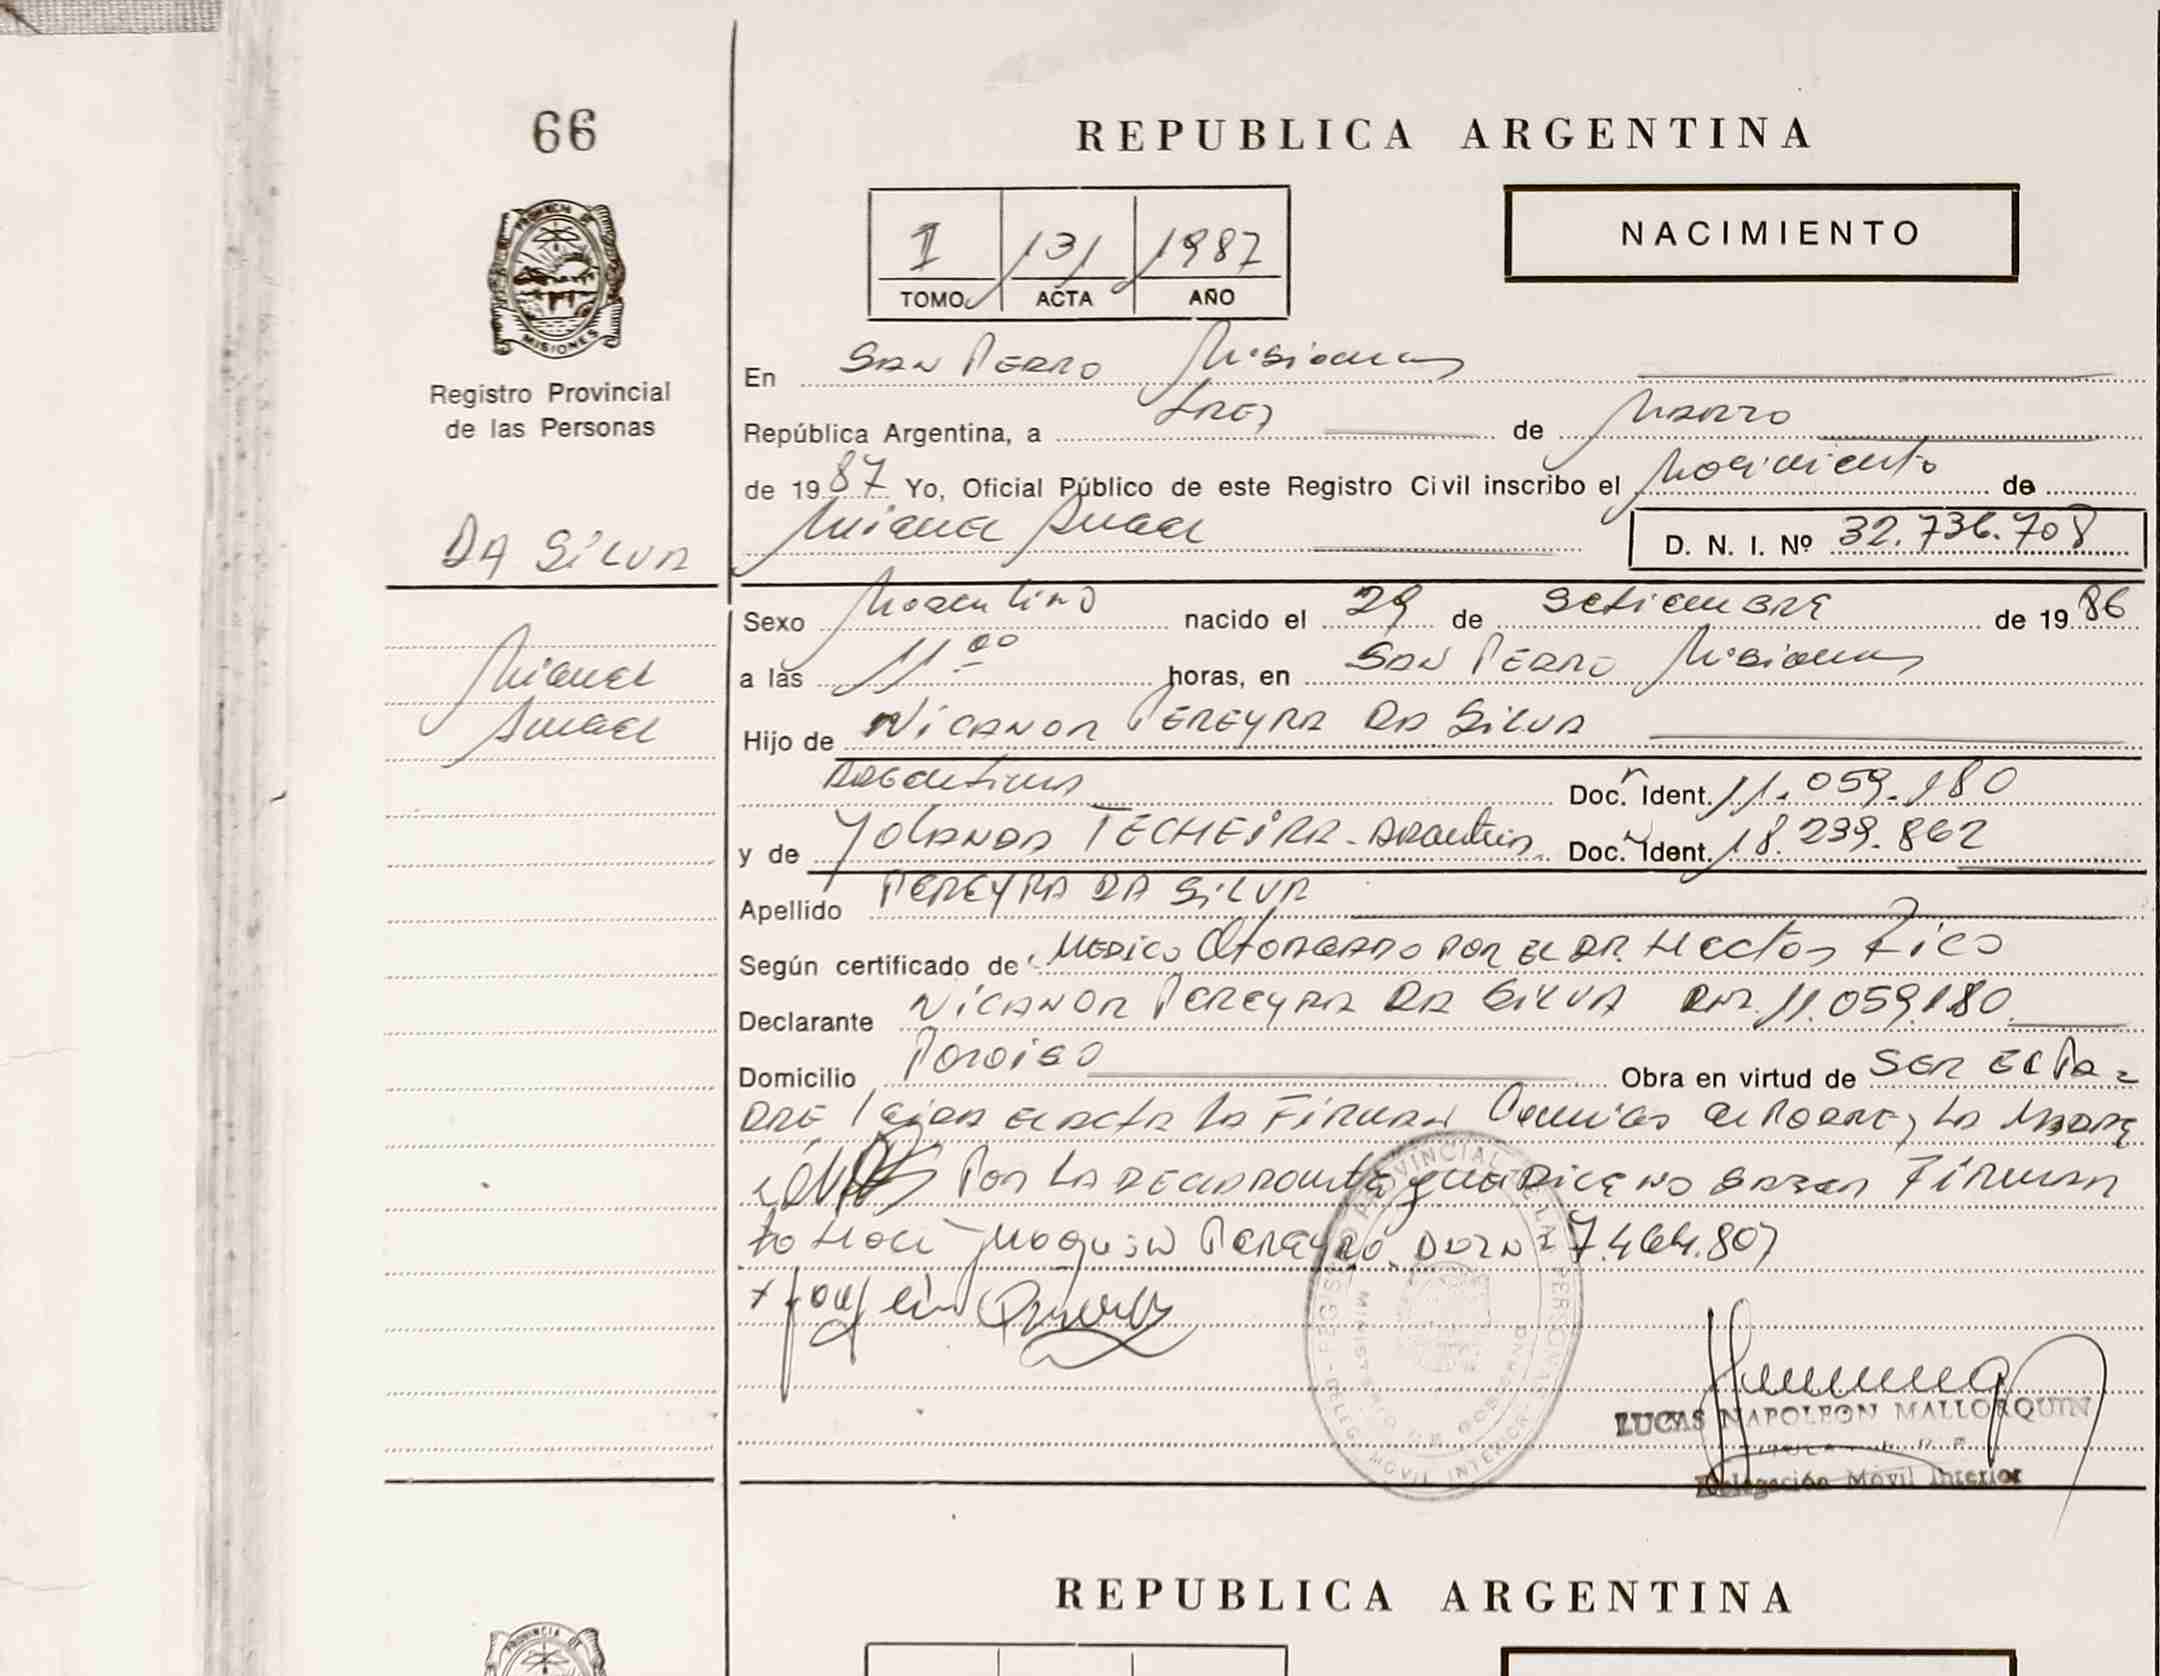 66
REPUBLICA ARGENTINA
I 131 1987
TOMO ACTA AÑO
NACIMIENTO
PROVINCIA DE
MISIONES
Registro Provincial
de las Personas
En San Pedro Misiones
República Argentina, a tres de Marzo
de 1987 Yo, Oficial Público de este Registro Civil inscribo el Nacimiento de
DA SILVA
Miguel Angel D. N. I. Nº 32.736.708
Sexo Masculino nacido el 29 de Setiembre de 1986
Miguel
Angel
a las 11 00 horas, en San Pedro Misiones
Hijo de NICANOR PEREYRA DA SILVA
Argentino Doc. Ident. 11.059.180
y de YOLANDA TECHEIRA - Argentina Doc. Ident. 18.239.862
Apellido PEREYRA DA SILVA
Según certificado de Medico Otorgado por el DR. Hector Rico
Declarante NICANOR PEREYRA DA SILVA DNI. 11.059.180
Domicilio Paraiso Obra en virtud de SER EL PA-
DRE el acta la Firman el Padre, la Madre
Por la que Dice no Saber Firmar
lo Hace Joaquin Pereyra 7.464.807
REGISTRO PROVINCIAL DE LAS PERSONAS
MINISTERIO DE GOBIERNO
DELEG. MOVIL INTERIOR
LUCAS NAPOLEON MALLORQUIN
Delegación Móvil Interior
REPUBLICA ARGENTINA
PROVINCIA DE